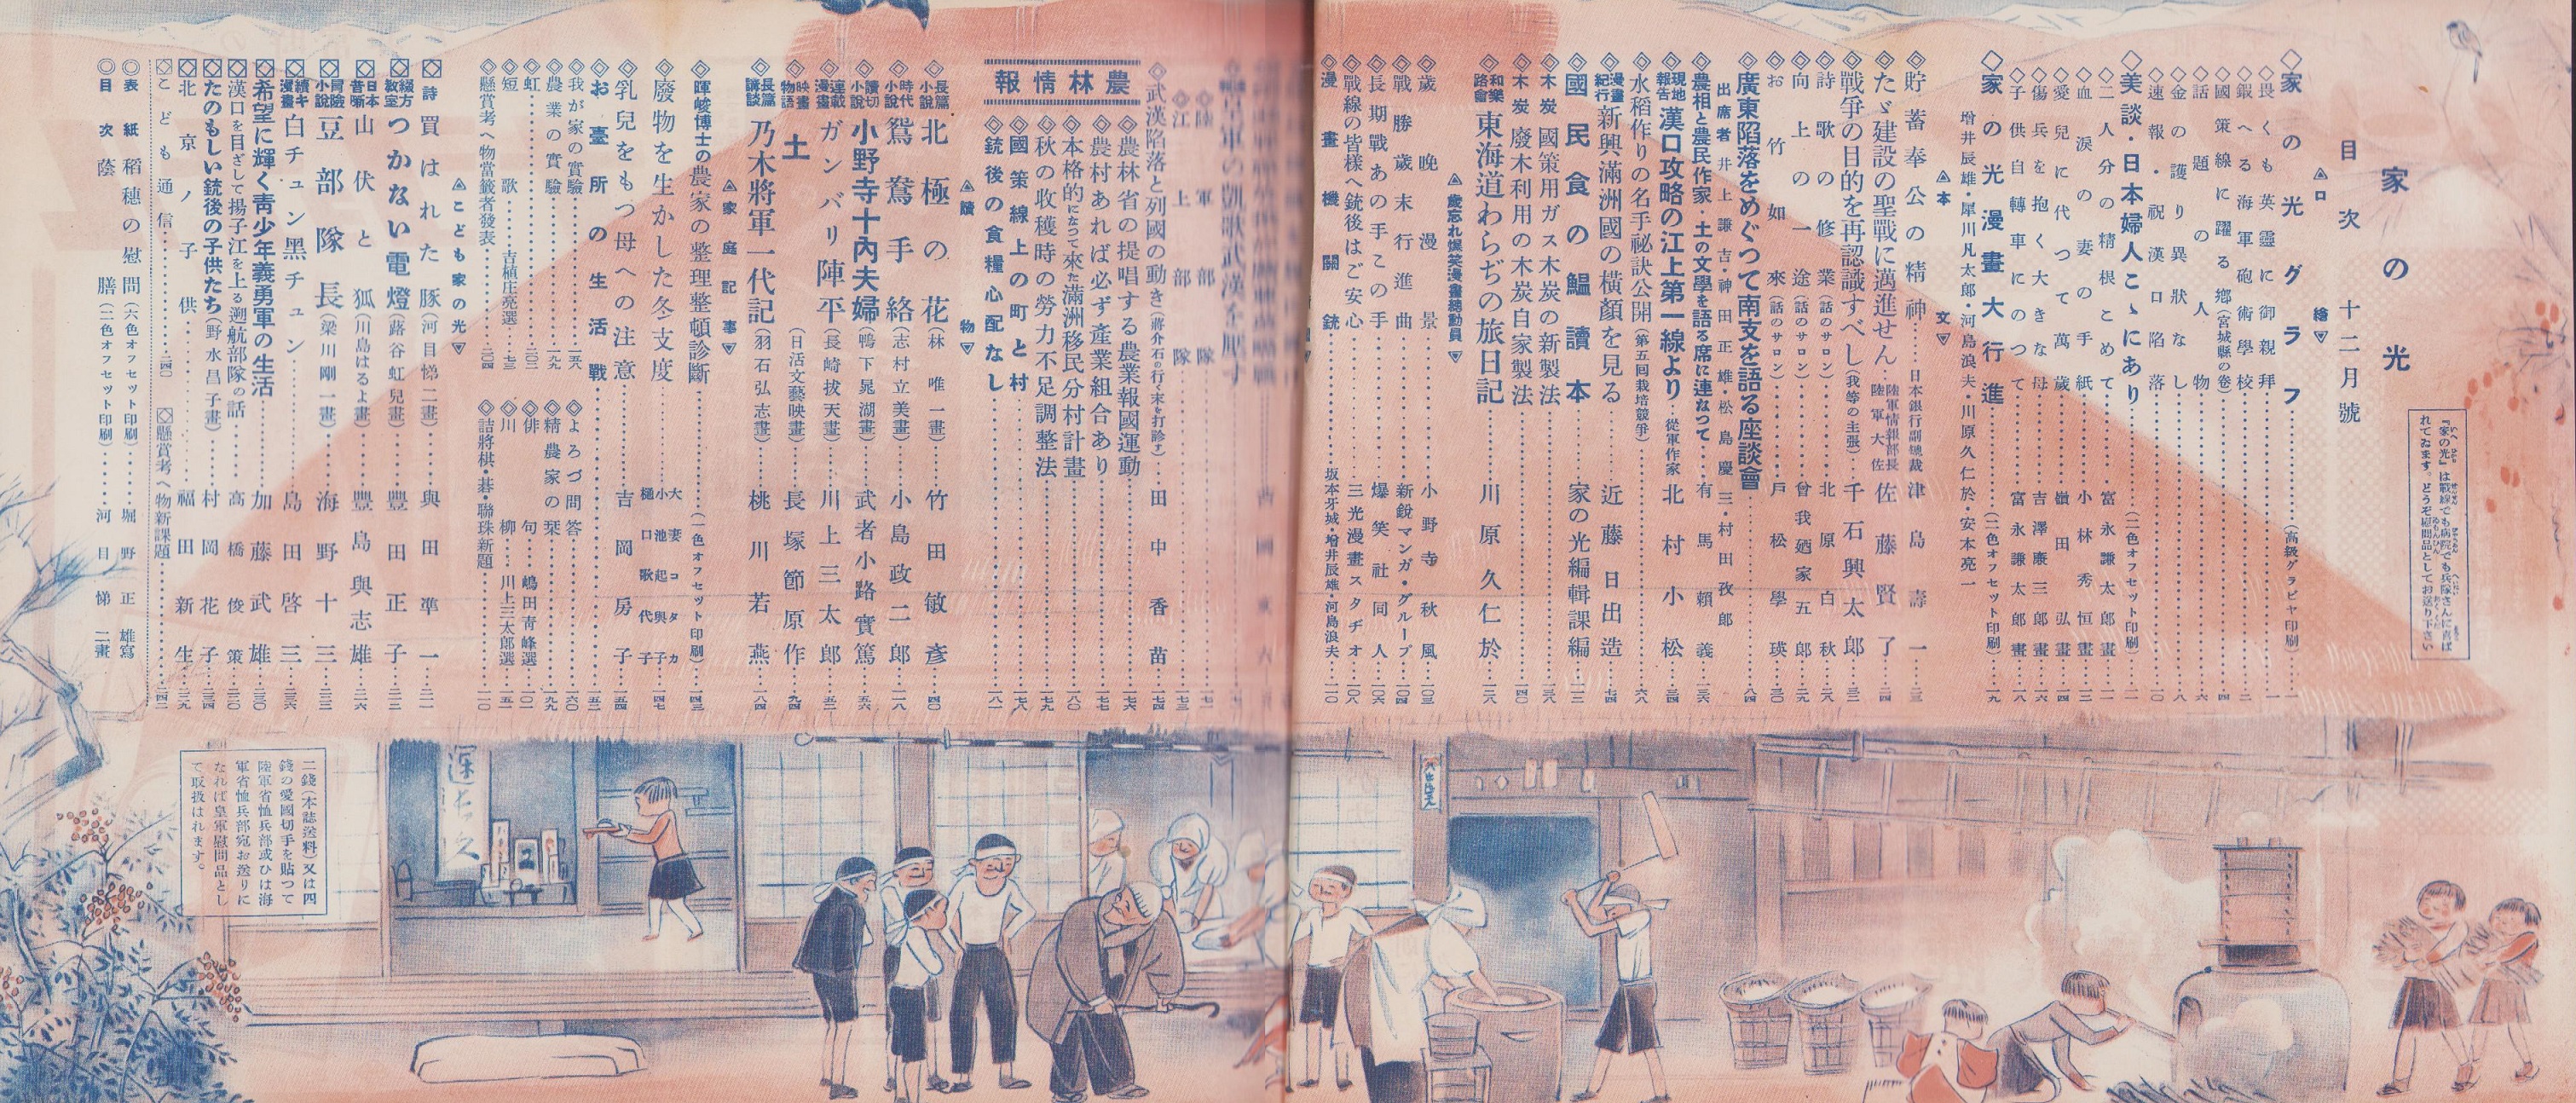 家の光
目次 十二月號
『家の光』は戰線でも病院でも兵隊さんに喜ばれてゐます。どうぞ慰問品としてお送り下さい
口繪
◇家の光グラフ（高級グラビヤ印刷）
◇畏くも英靈に御親拜
◇鍛へる海軍砲術學校
◇國策線に躍る鄕（宮城縣の卷）
◇話題の人物
◇金の護り異狀なし
◇速報・祝漢口陷落
◇美談・日本婦人こゝにあり（二色オフセット印刷）
◇二人分の精根こめて 富永謙太郎畫
◇血淚の妻の手紙 小林秀恒畫
◇愛兒に代つて萬歲 嶺田弘畫
◇傷兵を抱く大きな母 吉澤廉三郎畫
◇子供自轉車にのつて 富永謙太郎畫
◇家の光漫畫大行進（二色オフセット印刷）
增井辰雄・犀川凡太郎・河島浪夫・川原久仁於・安本亮一
本文
◇貯蓄奉公の精神 日本銀行副總裁 津島壽一
◇たゞ建設の聖戰に邁進せん 陸軍情報部長 陸軍大佐 佐藤賢了
◇戰爭の目的を再認識すべし（我等の主張） 千石興太郎
◇詩歌の修業（話のサロン） 北原白秋
◇向上の一途（話のサロン） 曾我廼家五郎
◇お竹如來（話のサロン） 戶松學瑛
◇廣東陷落をめぐつて南支を語る座談會
出席者 井上謙吉・神田正雄・松島慶三・村田孜郎
◇農相と農民作家・土の文學を語る席に連なつて 有馬賴義
◇現地報告 漢口攻略の江上第一線より 從軍作家 北村小松
◇水稻作りの名手祕訣公開（第五回栽培競爭）
◇漫畫紀行 新興滿洲國の橫顏を見る 近藤日出造
◇國民食の鰮讀本 家の光編輯課編
◇木炭 國策用ガス木炭の新製法
◇木炭 廢木利用の木炭自家製法
◇和樂路會 東海道わらぢの旅日記 川原久仁於
歲忘れ爆笑漫畫總動員
◇歲晩漫景 小野寺秋風
◇戰勝歲末行進曲 新銳マンガ・グループ
◇長期戰あの手この手 爆笑社同人
◇戰線の皆樣へ銃後はご安心 三光漫畫スタヂオ
◇漫畫機關銃 坂本牙城・增井辰雄・河島浪夫
皇軍の凱歌武漢を壓す
◇陸軍部隊
◇江上部隊
◇武漢陷落と列國の動き（蔣介石の行く末を打診す） 田中香苗
農林情報
◇農林省の提唱する農業報國運動
◇農村あれば必ず產業組合あり
◇本格的になつて來た滿洲移民分村計畫
◇秋の收穫時の勞力不足調整法
◇國策線上の町と村
◇銃後の食糧心配なし
讀物
◇長篇小說 北極の花（林唯一畫） 竹田敏彥
◇時代小說 鴛鴦手絡（志村立美畫） 小島政二郎
◇讀切小說 小野寺十內夫婦（鴨下晁湖畫） 武者小路實篤
◇連載漫畫 ガンバリ陣平（長崎拔天畫） 川上三太郎
◇映畫物語 土（日活文藝映畫） 長塚節原作
◇長篇講談 乃木將軍一代記（羽石弘志畫） 桃川若燕
家庭記事
◇暉峻博士の農家の整理整頓診斷（一色オフセット印刷）
◇廢物を生かした冬支度 大妻コタカ 小池起與子 樋口歌代
◇乳兒をもつ母への注意 吉岡房子
◇お臺所の生活戰
◇我が家の實驗
◇農業の實驗
◇虹
◇短歌 吉植庄亮選
◇懸賞考へ物當籤者發表
◇よろづ問答
◇精農家の栞
◇俳句 嶋田靑峰選
◇川柳 川上三太郎選
◇詰將棋・碁・聯珠新題
こども家の光
◇詩 買はれた豚（河目悌二畫） 與田準一
◇綴方教室 つかない電燈（蕗谷虹兒畫） 豐田正子
◇日本昔噺 山伏と狐（川島はるよ畫） 豐島與志雄
◇冒險小說 豆部隊長（梁川剛一畫） 海野十三
◇續キ漫畫 白チュン黑チュン 島田啓三
◇希望に輝く靑少年義勇軍の生活 加藤武雄
◇漢口を目ざして揚子江を上る遡航部隊の話 高橋俊策
◇たのもしい銃後の子供たち（野水昌子畫） 村岡花子
◇北京ノ子供 福田新生
◇こども通信
◇懸賞考へ物新課題
◎表紙 稻穗の慰問（六色オフセット印刷） 堀野正雄寫
◎目次 蔭膳（二色オフセット印刷） 河目悌二畫
二錢（本誌送料）又は四
錢の愛國切手を貼つて
陸軍省恤兵部或ひは海
軍省恤兵部宛お送りに
なれば皇軍慰問品とし
て取扱はれます。